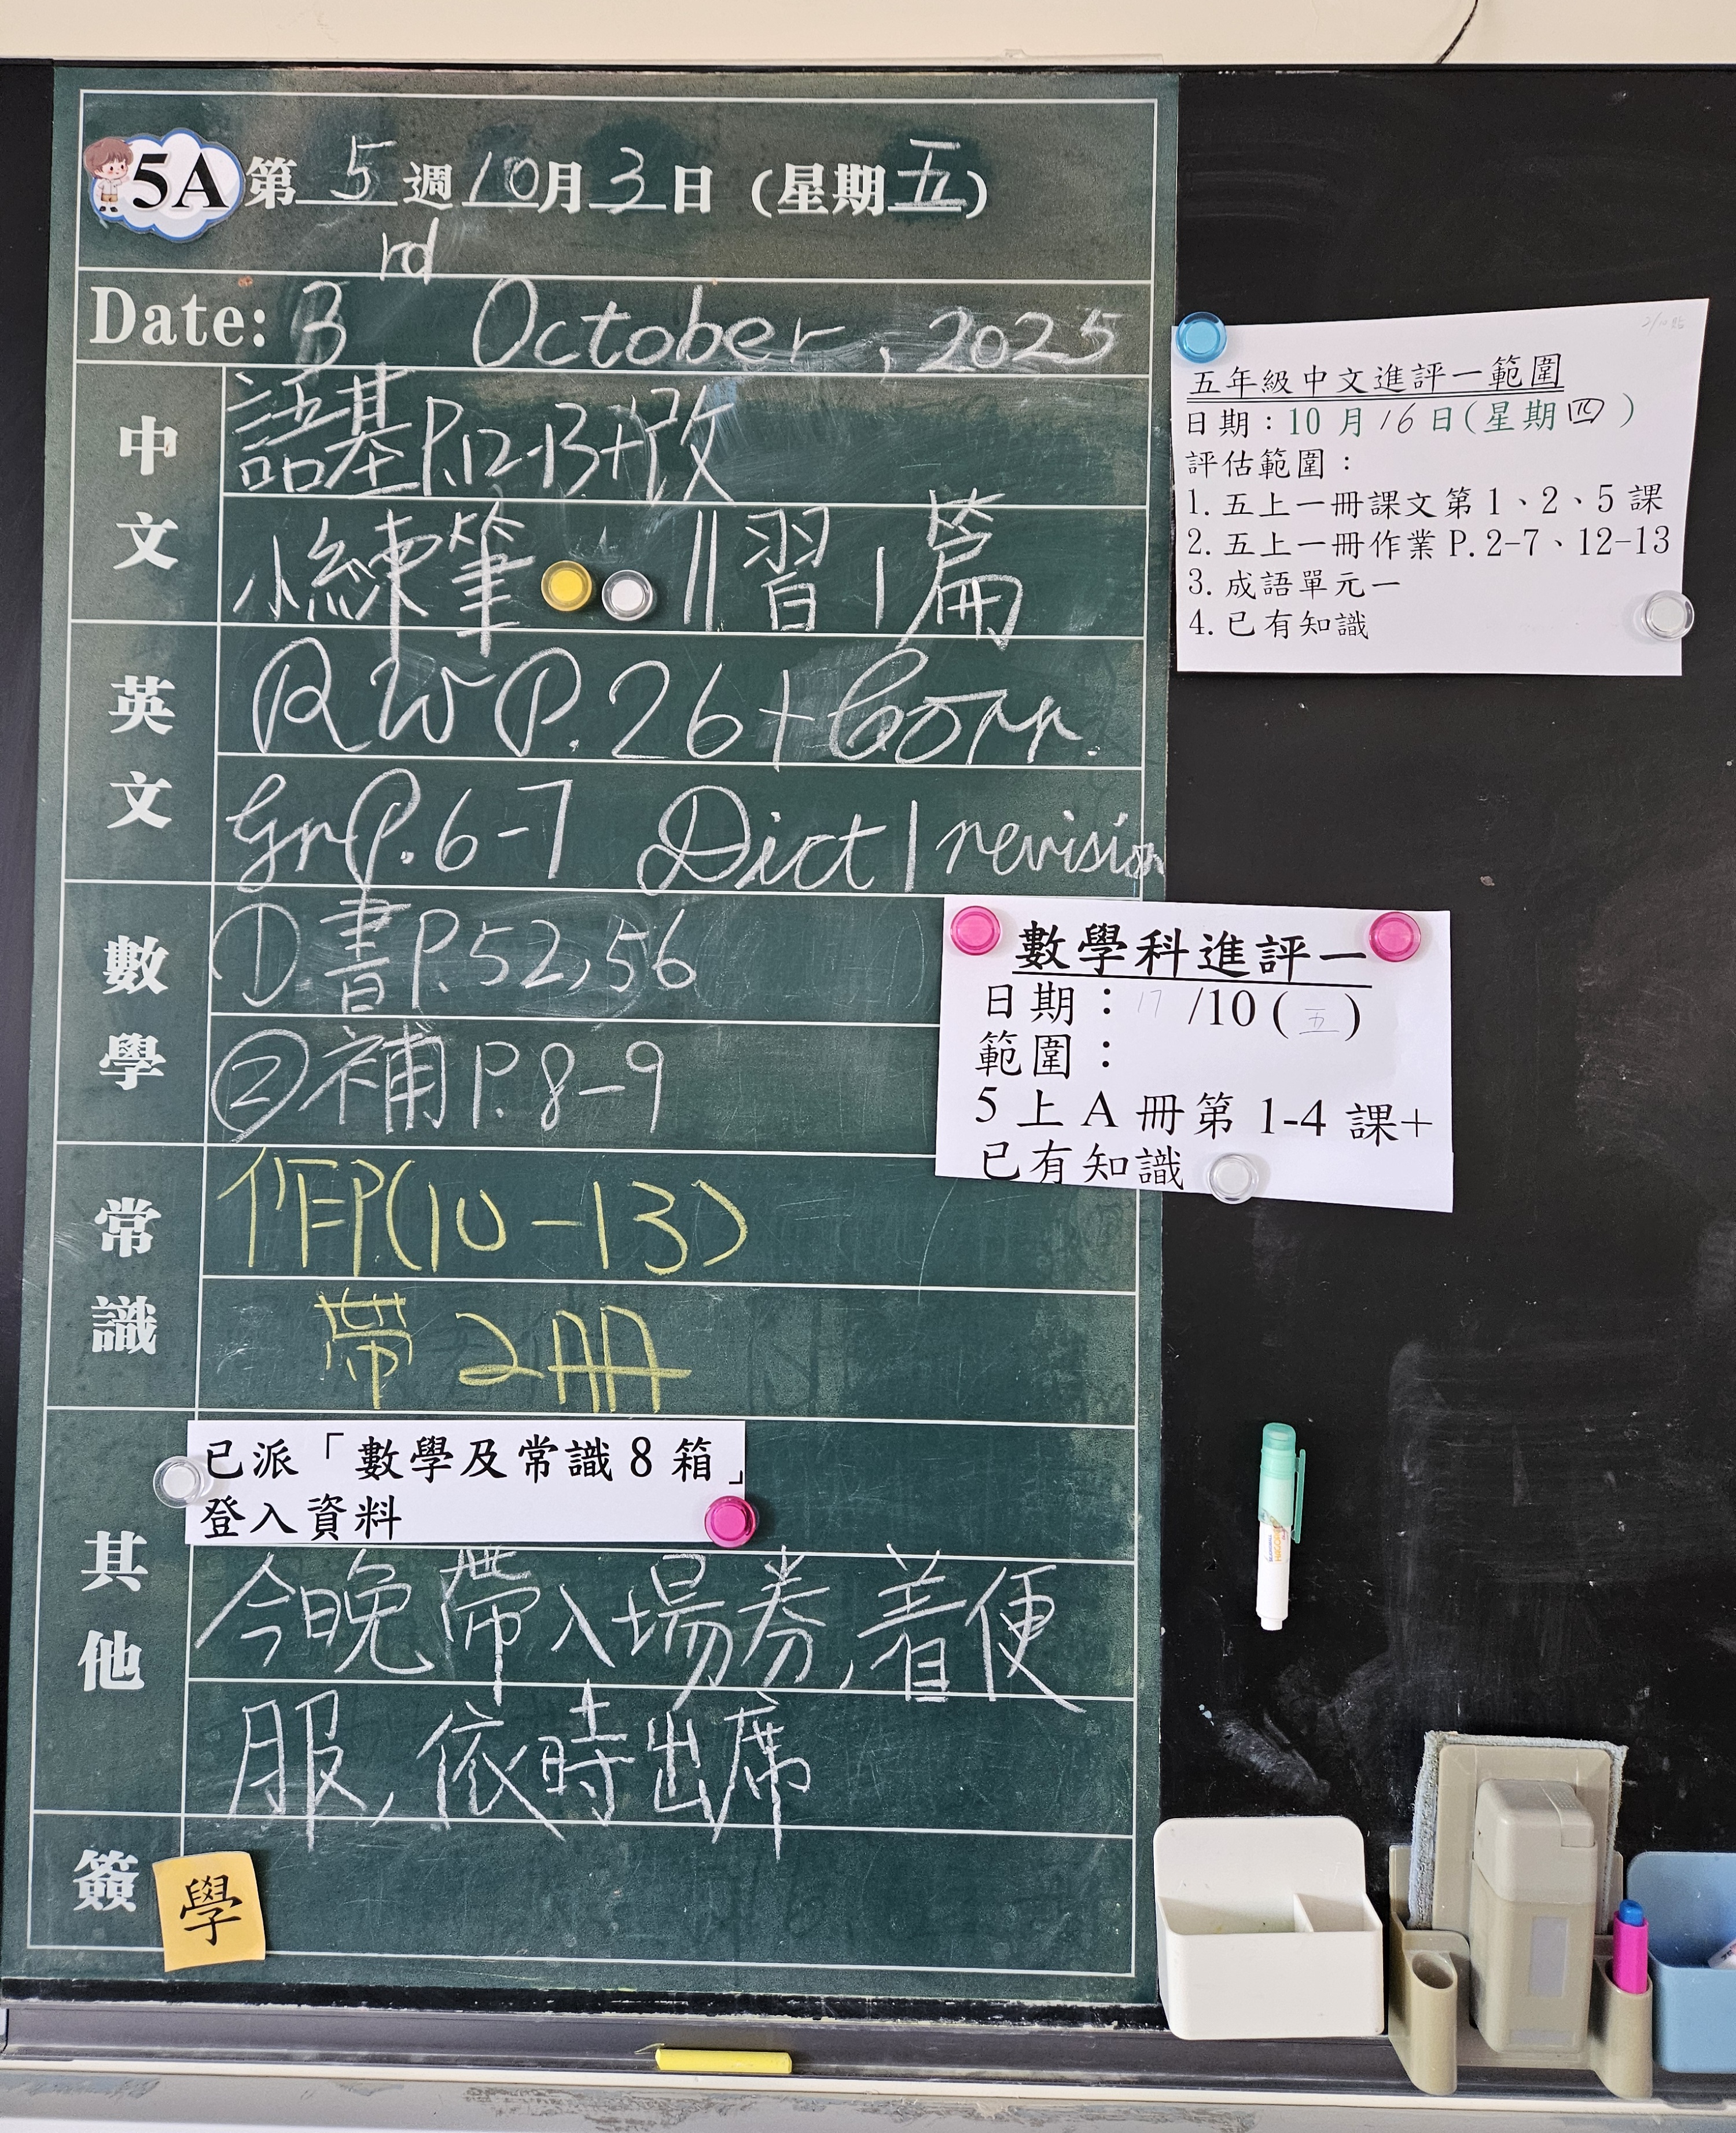 5A 第 5 週 10 月 3 日 (星期五)
Date: 3rd October, 2025
中文
語基P.12-13+改
小練筆 || 習 1 篇
英文
RW P.26 + Corr.
Gr P. 6-7 Dict 1 revision
數學
① 書 P. 52, 56
② 補 P. 8-9
常識
作P(10-13)
帶 2冊
其他
已派「數學及常識 8 箱」
登入資料
今晚帶入場券,着便
服,依時出席
簽
學
2/10貼
五年級中文進評一範圍
日期:10 月 16 日(星期四)
評估範圍:
1. 五上一冊課文第 1、2、5 課
2. 五上一冊作業 P.2-7、12-13
3. 成語單元一
4. 已有知識
數學科進評一
日期: 17 /10 (五)
範圍:
5 上 A 冊第 1-4 課+
已有知識